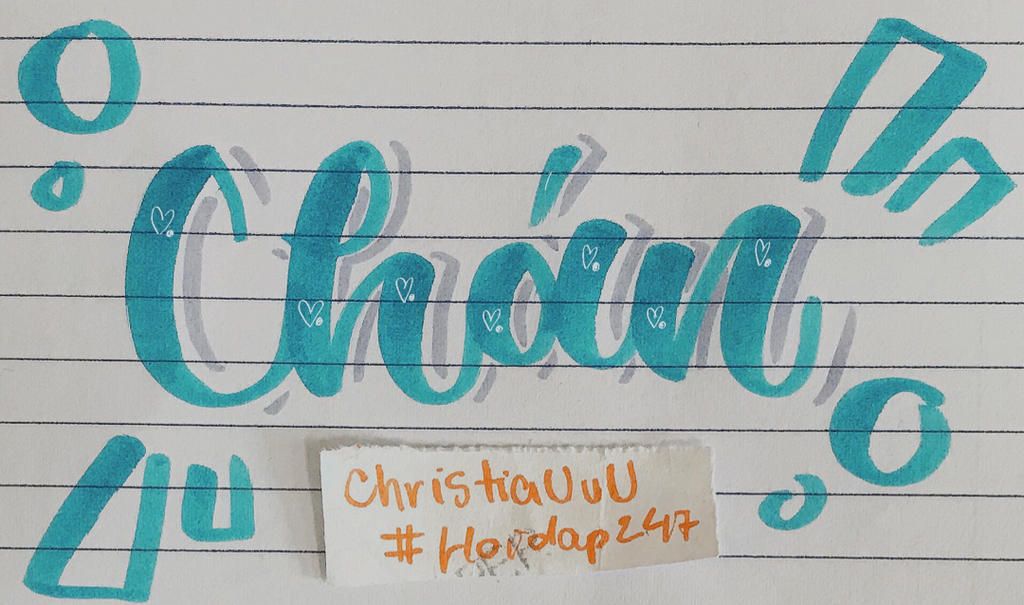 Chán
ChristiaUuU
#Hoidap247